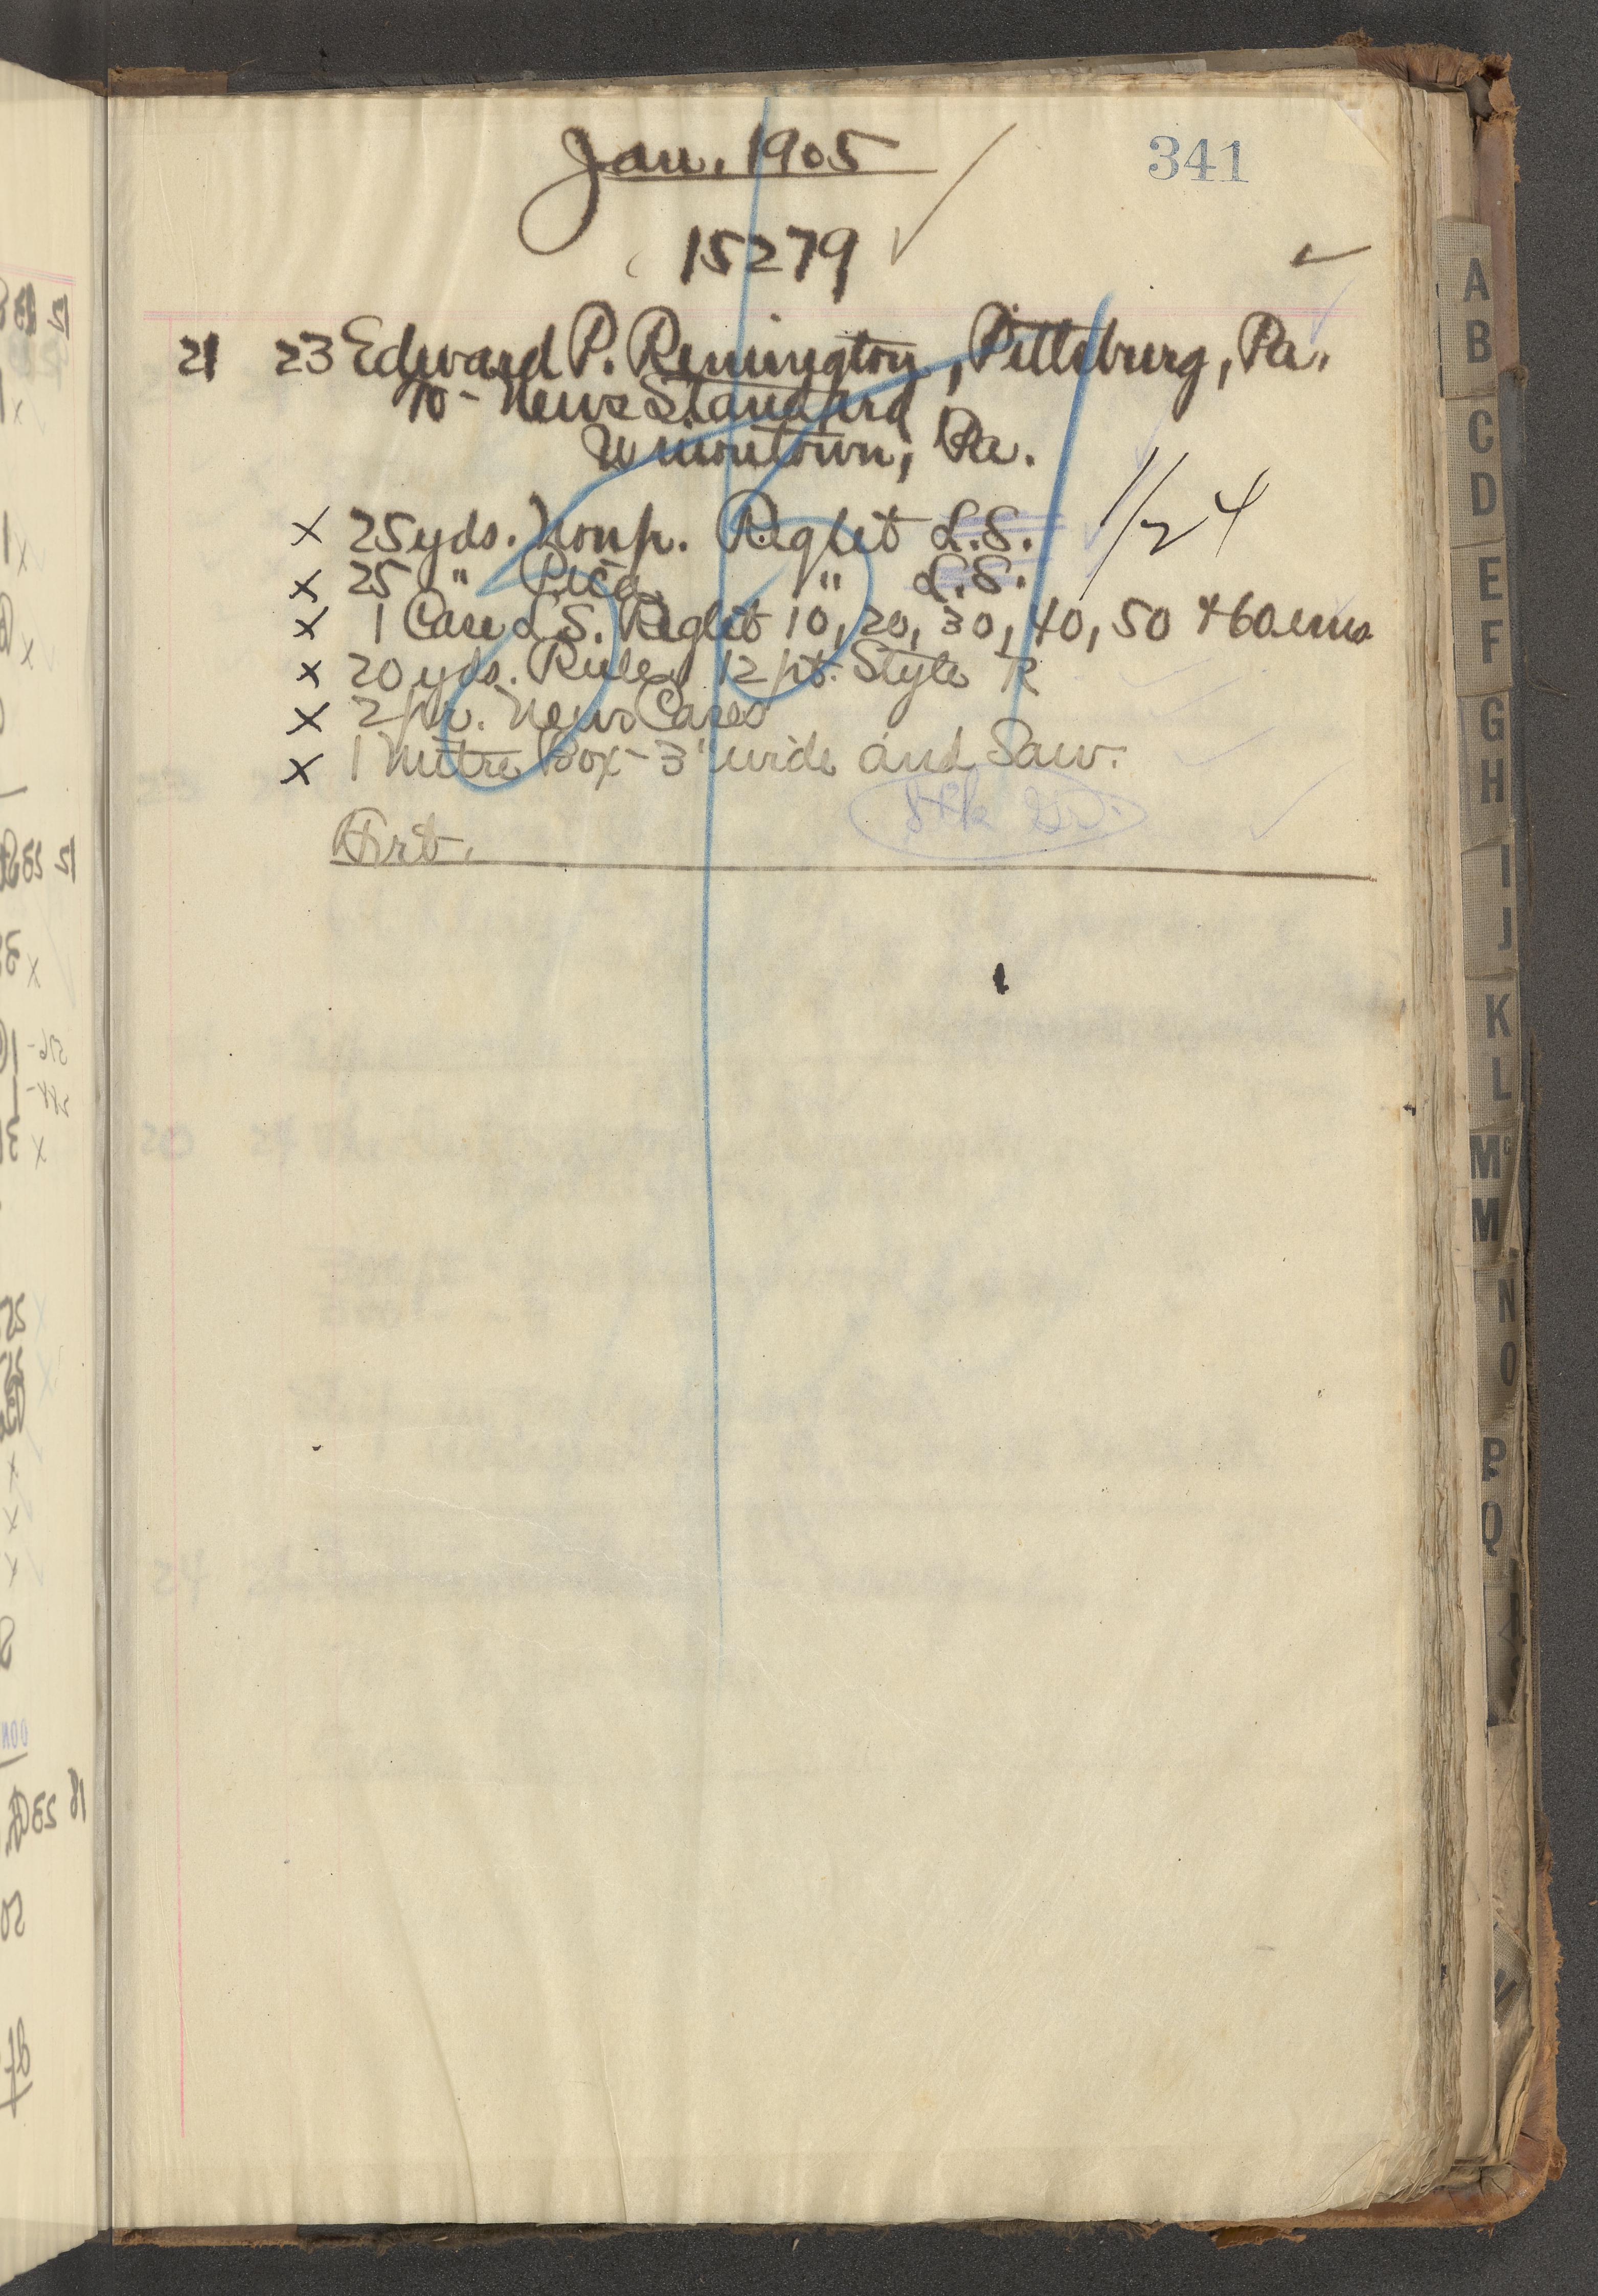 Jan. 1905
341
15279
21 23 Edward P. Remington, Pittsburg, Pa.
To - News Standard
Uniontown, Pa.
x 25 yds. Nonp. Reglet L.S. 1/24
x 25 " Pica " L.S.
x 1 Case L.S. Reglet 10, 20, 30, 40, 50 + 60 ems
x 20 yds. Rule, 12 pt. Style R
x 2 pr. News Cases
x 1 Mitre Box - 3" wide and Saw.
Frt.
A
B
C
D
E
F
G
H
I
J
K
L
Mc
M
N
O
P
Q